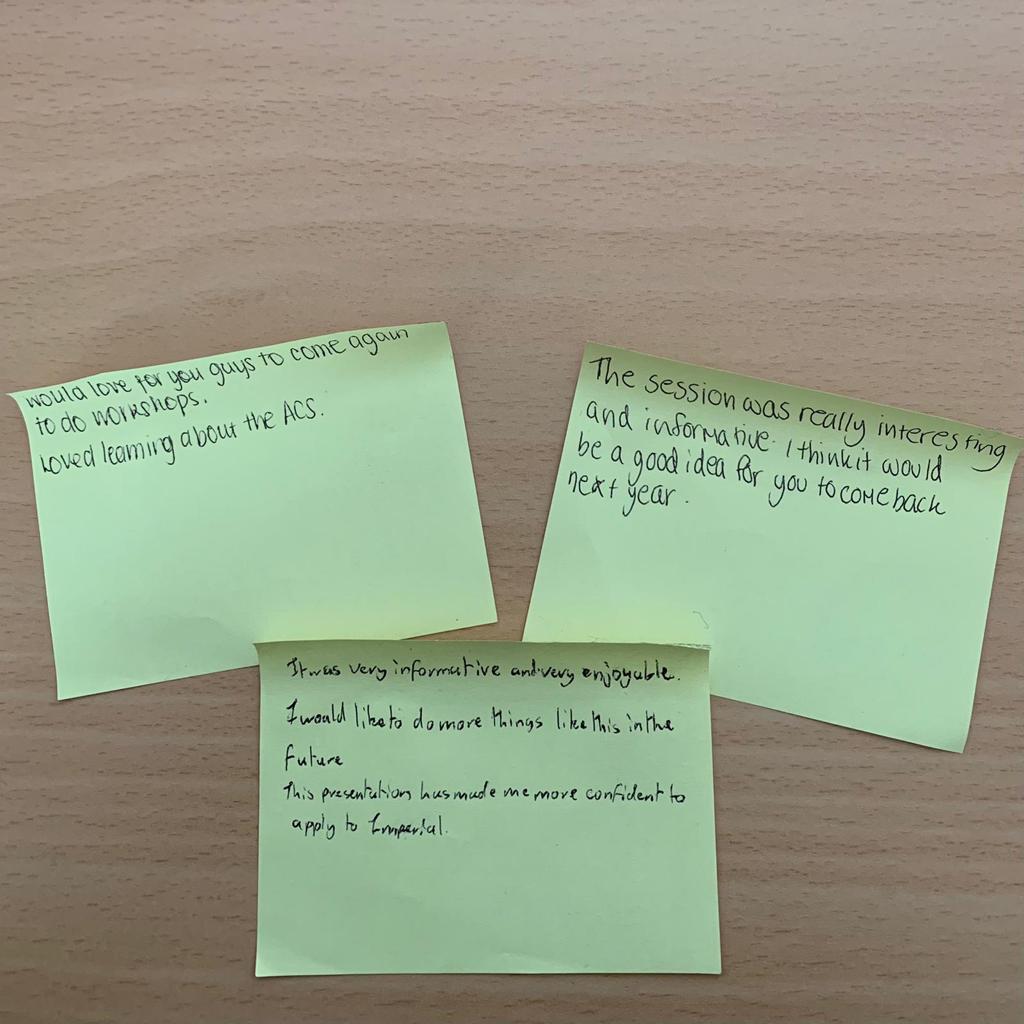 would love for you guys to come again
to do workshops.
Loved learning about the ACS.
The session was really interesting
and informative. I think it would
be a good idea for you to come back
next year.
It was very informative and very enjoyable.
I would like to do more things like this in the
future
This presentation has made me more confident to
apply to Imperial.